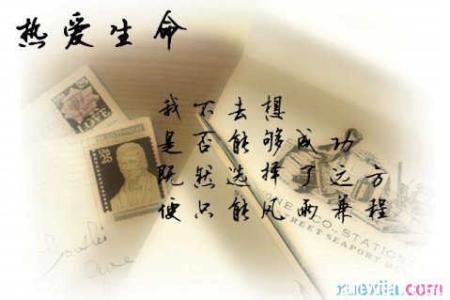 热爱生命
我不去想
是否能够成功
既然选择了远方
便只能风雨兼程
LOVE
USA
25
NE & CO. STATION
STREET SEAPORT
xuexila.com